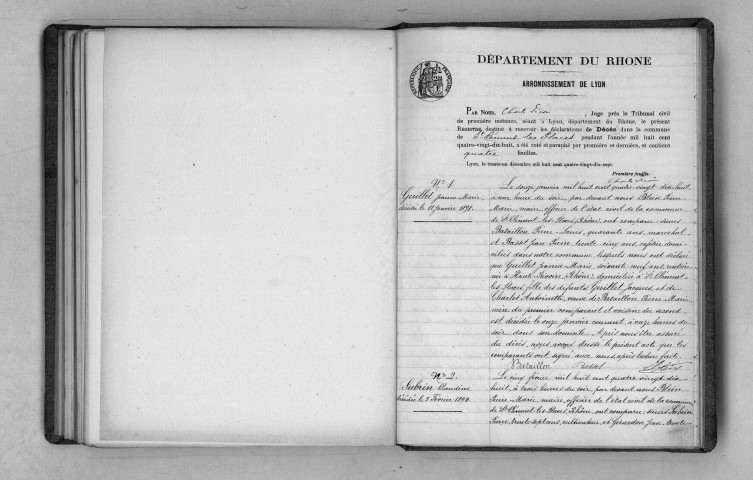 DÉPARTEMENT DU RHONE
ARRONDISSEMENT DE LYON
RÉPUBLIQUE FRANÇAISE
PAR NOUS, , Juge près le Tribunal civil
de première instance, séant à Lyon, département du Rhône, le présent
REGISTRE destiné à recevoir les déclarations de Décès dans la commune
de St Clément les Places pendant l'année mil huit cent
quatre-vingt-dix-huit, a été coté et paraphé par première et dernière, et contient
quatre feuilles.
Lyon, le trente-un décembre mil huit cent quatre-vingt-dix-sept.
Première feuille.
No 1
Guillet Jeanne Marie
décédée le 11 janvier 1898.
Le douze janvier mil huit cent quatre vingt dix huit,
à une heure du soir, par devant nous Blein Pierre
Marie, maire, officier de l'état civil de la commune
de St Clément les Places, Rhône, ont comparu sieurs
Bataillon Pierre Louis, quarante ans, marechal
et Basset Jean Pierre, trente cinq ans, domi-
ciliés dans notre commune, lesquels nous ont déclaré
que Guillet Jeanne Marie, soixante neuf ans
née à Haute Rivoire, (Rhône), domiciliée à St Clément
les Places fille des défunts Guillet Jacques, et de
Charlet Antoinette, veuve de Bataillon Pierre Marie
du premier comparant et voisine du second
est décédée le onze janvier courant, à onze heures du
soir, dans son domicile. Après nous être assuré
du décès, nous avons dressé le présent acte que les
comparants ont signé avec nous après lecture faite.
Bataillon Basset
No 2.
Claudine
décédée le 5 Février 1898.
Le cinq février mil huit cent quatre vingt dix
huit, à trois heures du soir, par devant nous Blein
Pierre-Marie, maire, officier de l'état civil de la commune
de St Clément les Places, Rhône, ont comparu sieurs
Pierre, trente sept ans, cultivateur, et Gerardon Jean trente